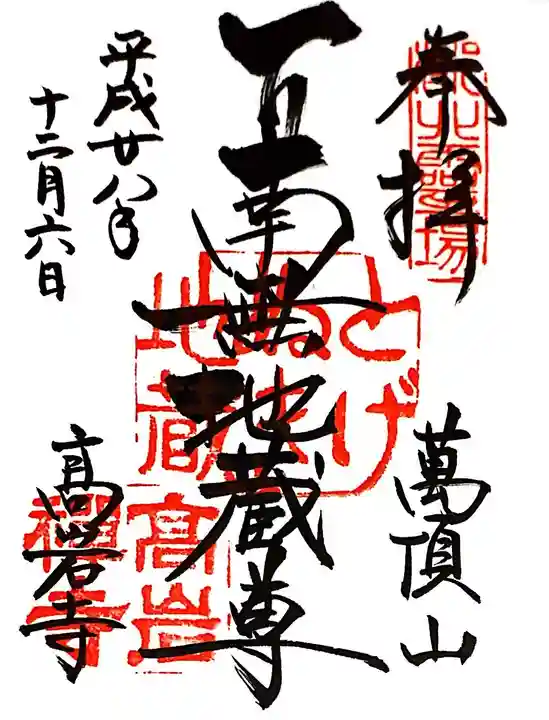 奉拝
萬頂山
南無地蔵尊
平成廿八年
十二月六日
高岩寺
とげぬき
地蔵
高岩
禅寺